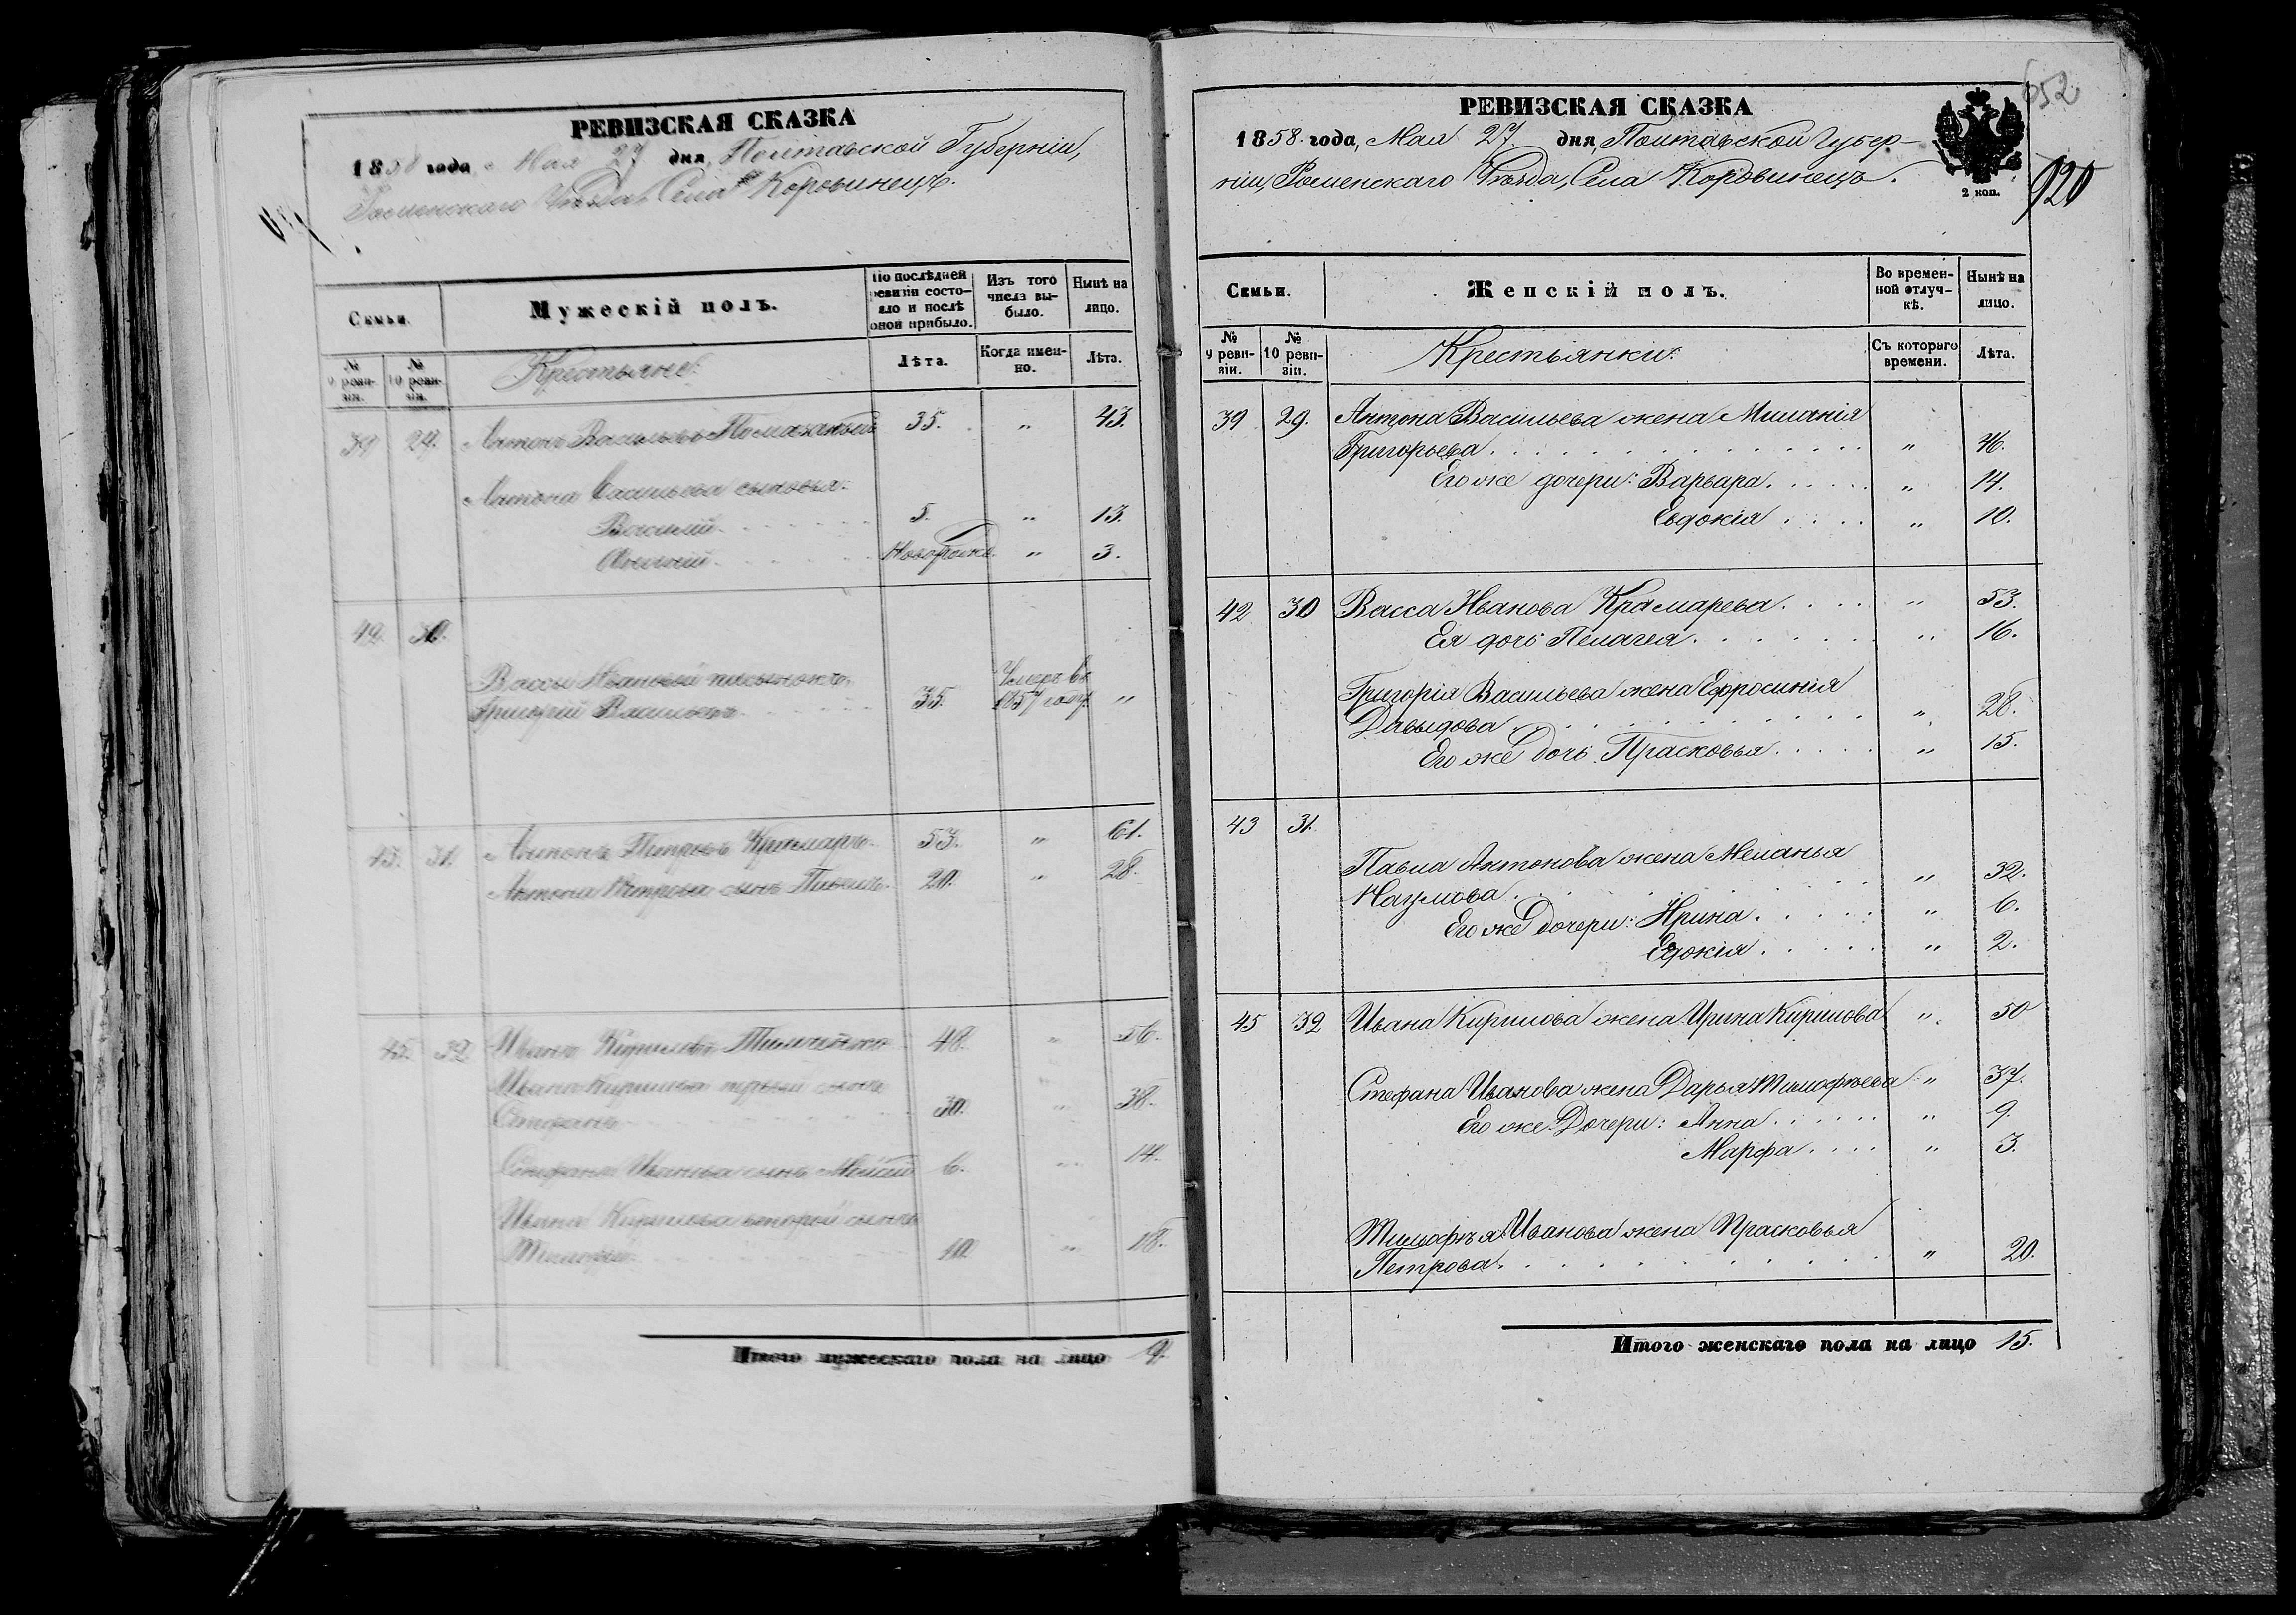 РЕВИЗСКАЯ СКАЗКА
1858 года, Мая 27 дня, Полтавской Губерніи,
Роменскаго Уѣзда, Села Коровинецъ.
Семьи.
Мужескій полъ.
По послѣдней ревизіи состояло и послѣ оной прибыло.
Изъ того числа выбыло.
Нынѣ на лицо.
№ 9 ревизіи.
№ 10 ревизіи.
Крестьяне:
Лѣта.
Когда именно.
Лѣта.
39 29. Антонъ Васильевъ 35. " 43.
Антона Васильева сыновья:
Василій 5. " 13.
Новорожд. " 3.
42. 30.
Вассы Ивановой пасынокъ
Григорій Васильевъ 35. Умеръ въ 1857 году "
43. 31. Антонъ Петровъ Крамаръ 53. " 61.
Антона Петрова сынъ Павелъ 20. " 28.
45. 32 Иванъ Кириловъ 48. " 56.
Ивана Кирилова первый сынъ
Стефанъ 30. " 38.
Стефана Иванова сынъ 6. " 14.
Ивана Кирилова второй сынъ
Тимофей 10. " 18.
Итого мужескаго пола на лицо 9.
652
РЕВИЗСКАЯ СКАЗКА
1858. года, Мая 27. дня, Полтавской Губер-
ніи, Роменскаго Уѣзда, Села Коровинецъ.
2 коп.
920
Семьи.
Женскій полъ.
Во временной отлучкѣ.
Нынѣ на лицо.
№ 9 ревизіи.
№ 10 ревизіи.
Крестьянки:
Съ котораго времени.
Лѣта.
39 29. Антона Васильева жена Миланія
Григорьева " 46.
Его же дочери: Варвара " 14.
Евдокія " 10.
42 30 Васса Иванова Крамарева " 53.
Ея дочь Пелагея " 16.
Григорія Васильева жена Ефросинія
Давыдова " 28.
Его же Дочь Прасковья " 15.
43 31.
Павла Антонова жена Меланья
Наумова " 32.
Его же Дочери: Ирина " 6.
Евдокія " 2.
45 32 Ивана Кирилова жена Ирина Кирилова " 50
Стефана Иванова жена Дарья Тимофѣева " 37.
Его же Дочери: Анна " 9.
Марфа " 3.
Тимофѣя Иванова жена Прасковья
Петрова " 20.
Итого женскаго пола на лицо 15.